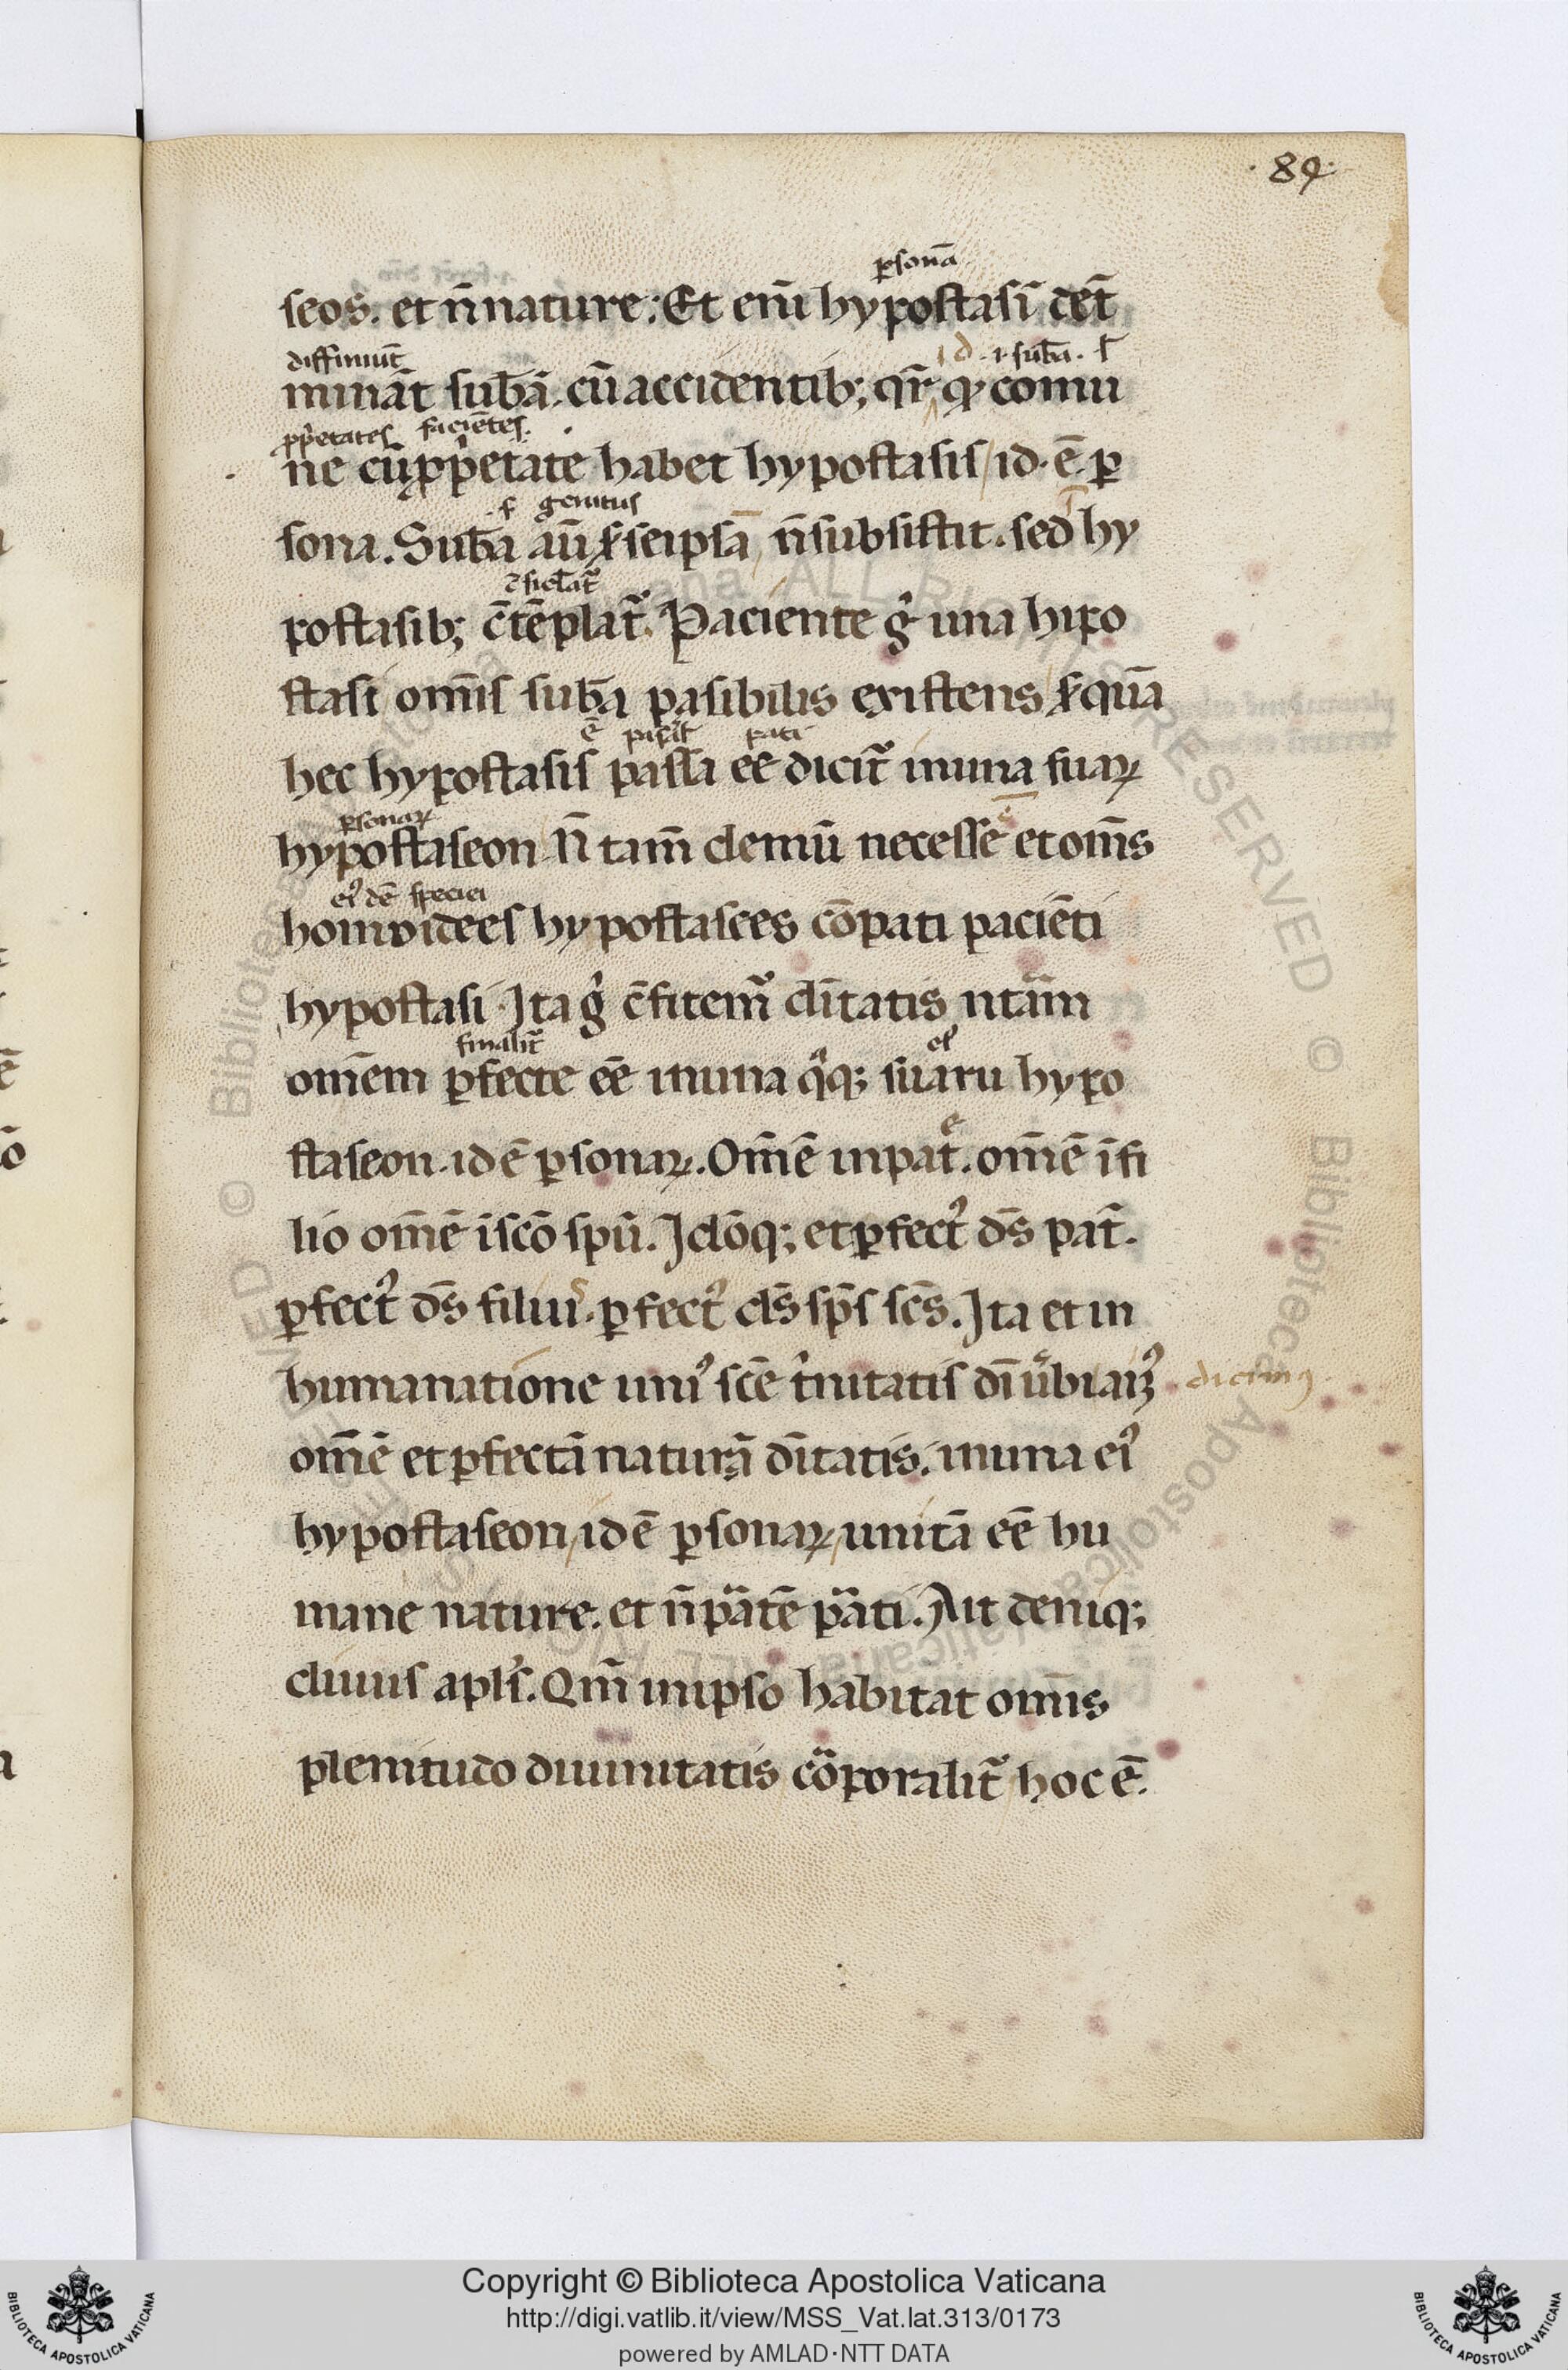 84
p̱sonā
seos. et n̄ nature: Et eni̅ hypostasi̅ det̅
diffiniūt id .i. sub̅a. ł
mināt sub̅a̅. cū accidentib; qr̄ q̨ comu
pp̄etates faciētes.
ne cū pp̄etate habet hypostasis / id. ē. ꝑ
s genitus
sona. Sub̅a au̅ ꝑ seipsā n̄ subsistit. sed ī hy
c̄sidatᷣ
postasib; c̄tēplatᷣ. Paciente gͦ una hipo
stasi om̅is sub̅a pasibilis existens / ꝑ quā
ē pati
hec hypostasis passa ee̅ dicitᷣ inuna suaꝝ
ꝑsonaꝝ ē
hypostaseon. N̄ tam̅ demū necesse et om̅s
eiꝰ dē speciei
homoidees hypostasees cōpati paciēti
hypostasi. Ita gͦ c̄fitemᷣ di̅tatis nt̅am
finalit̅ eiꝰ
om̅em ꝑfecte ee̅ inuna qͣq; suaru hypo
staseon. id ē ꝑsonaꝝ. Om̅ē inpat̅e. om̅ē ī fi
lio om̅ē ī sc̅o spū. Idōq; et ꝑfectꝰ d̅s pat̅.
ꝑfectꝰ d̅s filius. ꝑfectꝰ d̅s sp̅s sc̅s. Ita et in
humanatione uniꝰ sc̅e t̓nitatis di̅ u̓bi aiꝫꝰ dicimꝰ
om̅ē et ꝑfectā naturā di̅tatis. inuna eiꝰ
hypostaseon, id ē ꝑsonaꝝ, unitā ee̅ hu
mane nature. et n̄ pͣatē pͣati. Ait deniq;
diuius apl̅s. Qm̅ inipso habitat om̅is
plenitudo diuinitatis coͬporalit̅ hoc ē.
Copyright © Biblioteca Apostolica Vaticana
http://digi.vatlib.it/view/MSS_Vat.lat.313/0173
powered by AMLAD·NTT DATA